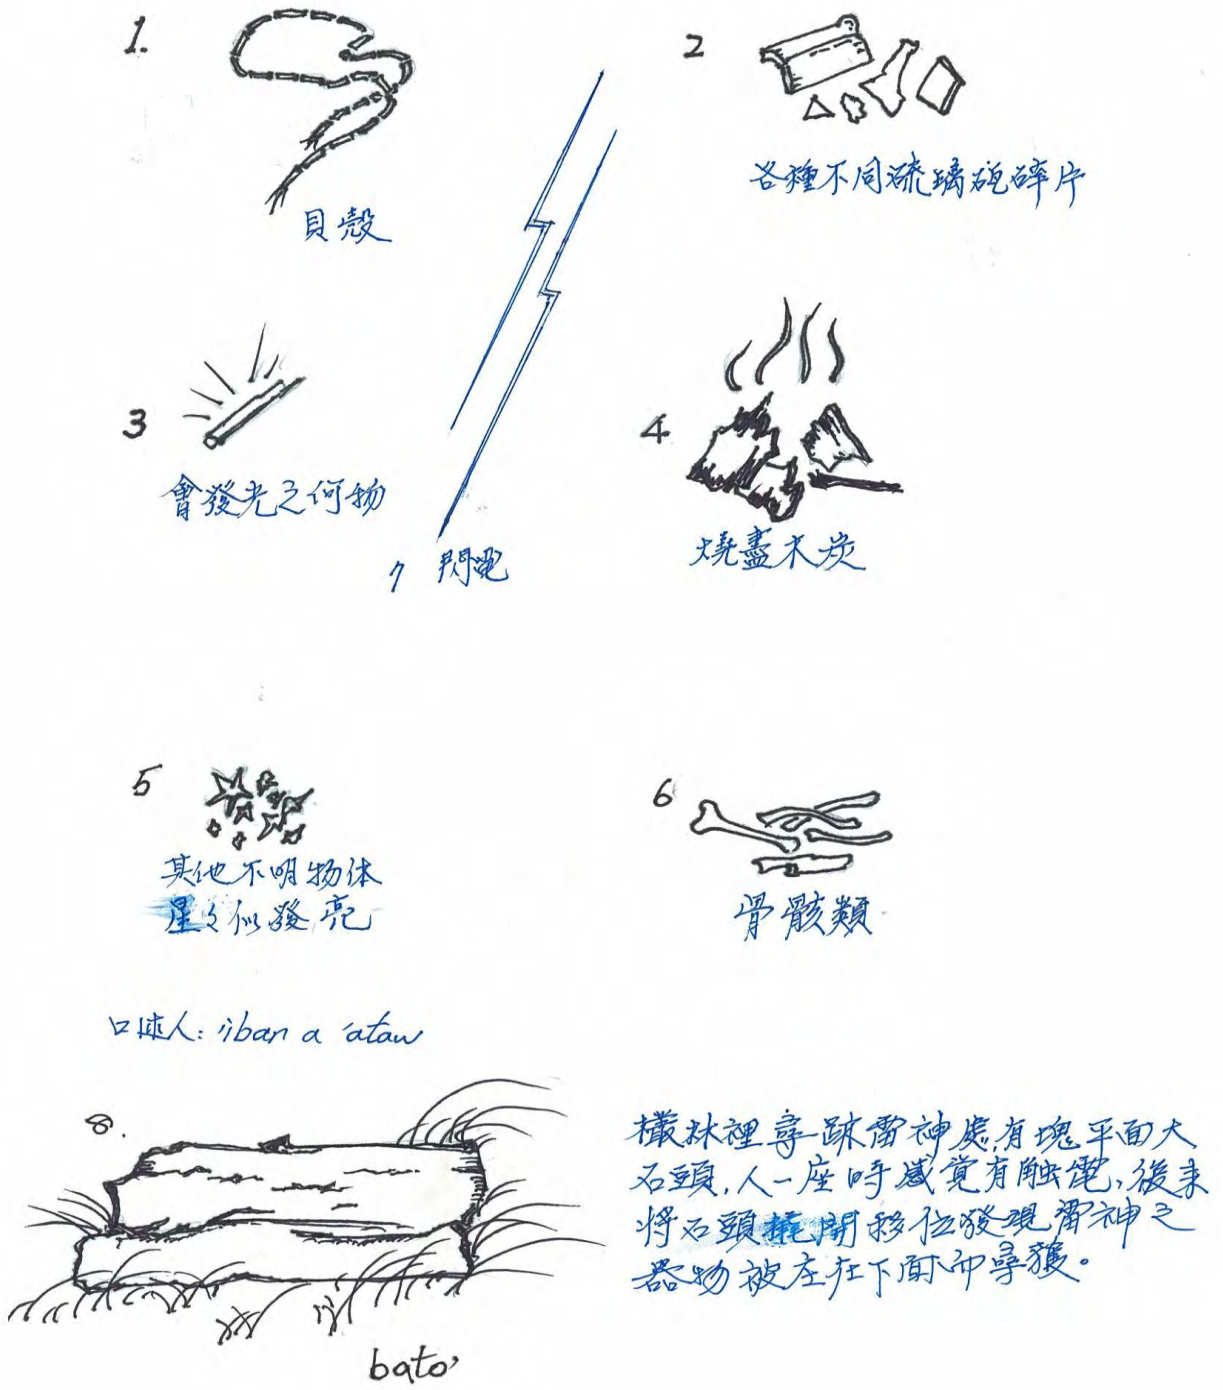 1.
貝殼
2
各種不同硫璃碗碎片
3
會發光之何物
4
燒盡木炭
7 閃電
5
其他不明物体
星々似發亮
6
骨骸類
口述人: iban a 'ataw
8.
bato'
樷林裡尋跡雷神處,有塊平面大
石頭,人一座時感覚有触電,後來
將石頭撬開移位發現雷神之
器物被在下面而尋獲。